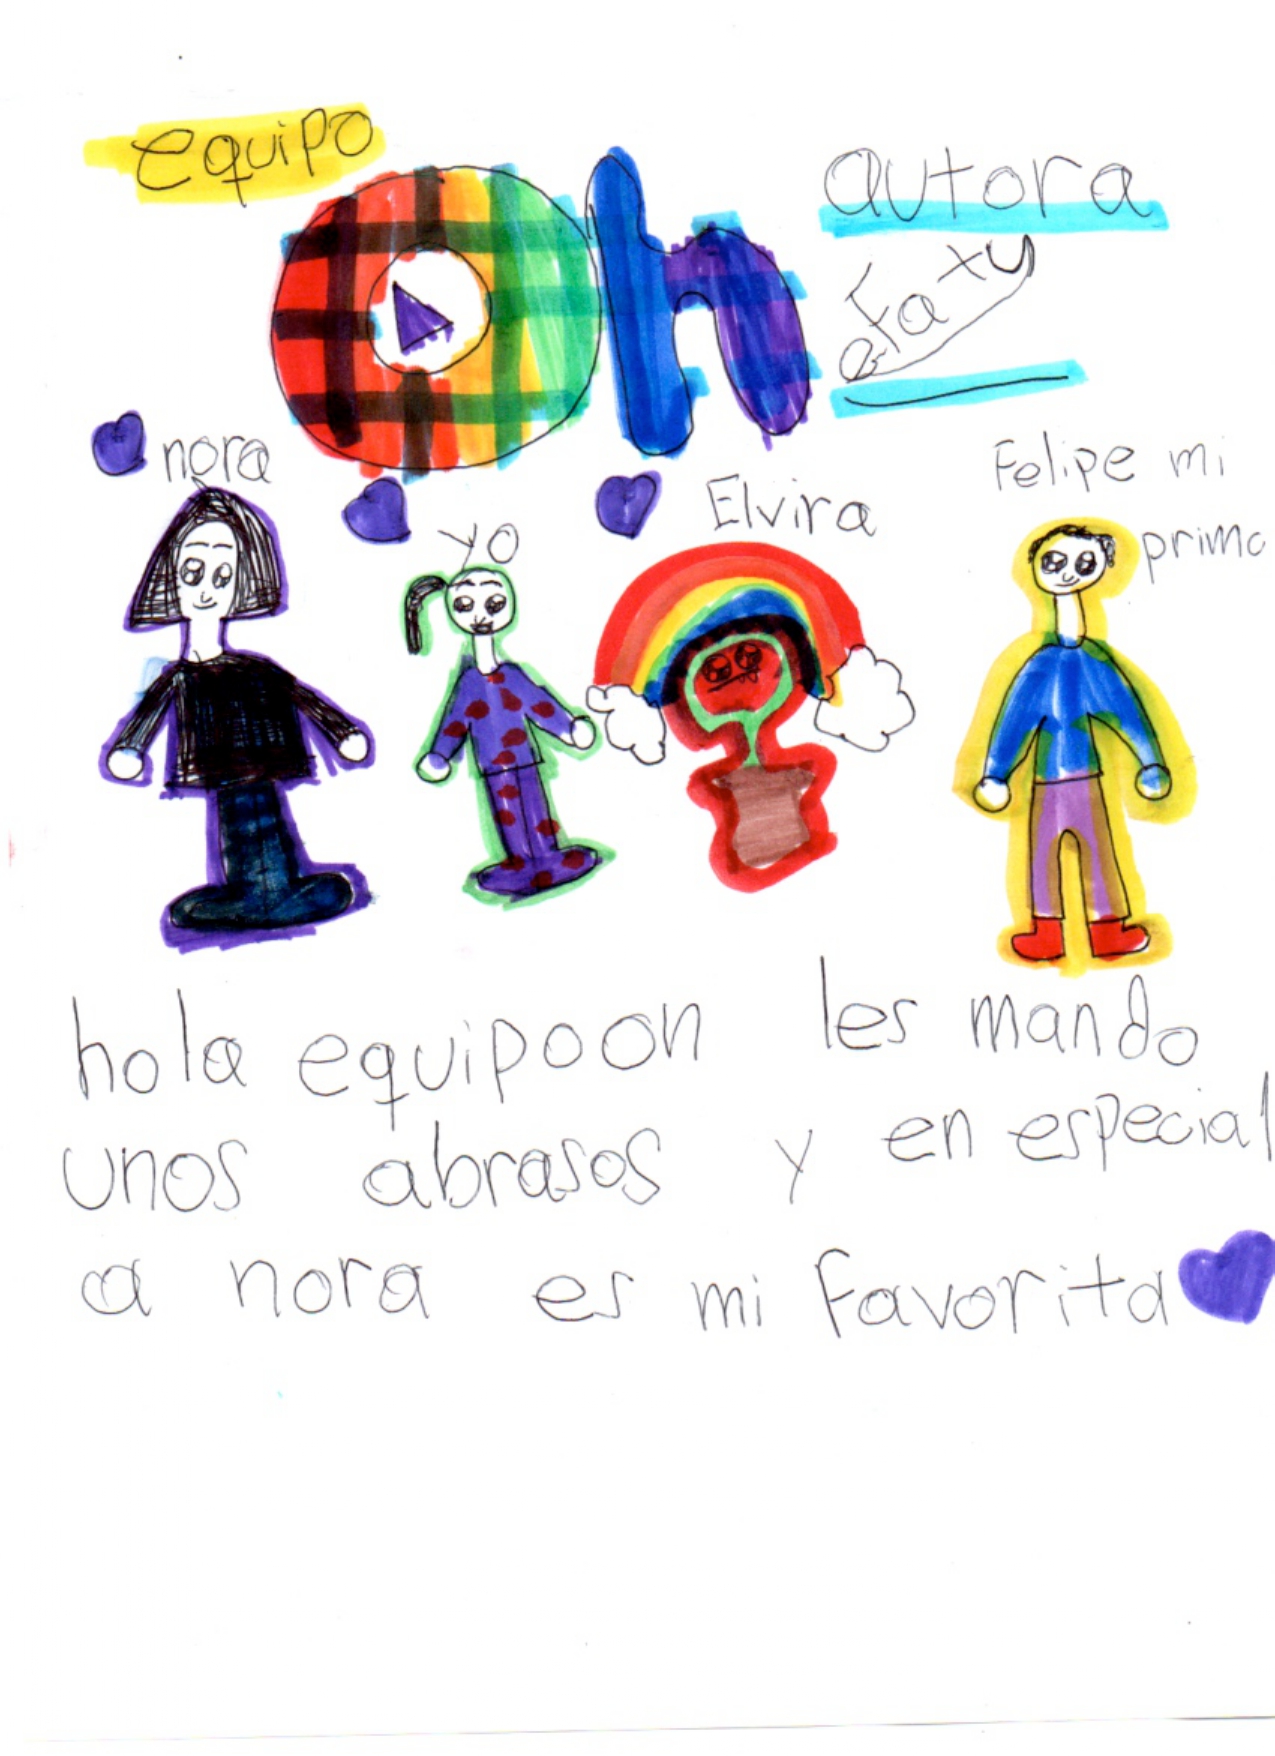 equipo
On
autora
nora
yo
Elvira
Felipe mi
primo
hola equipoon les mando
unos abrasos y en especial
a nora es mi favorita